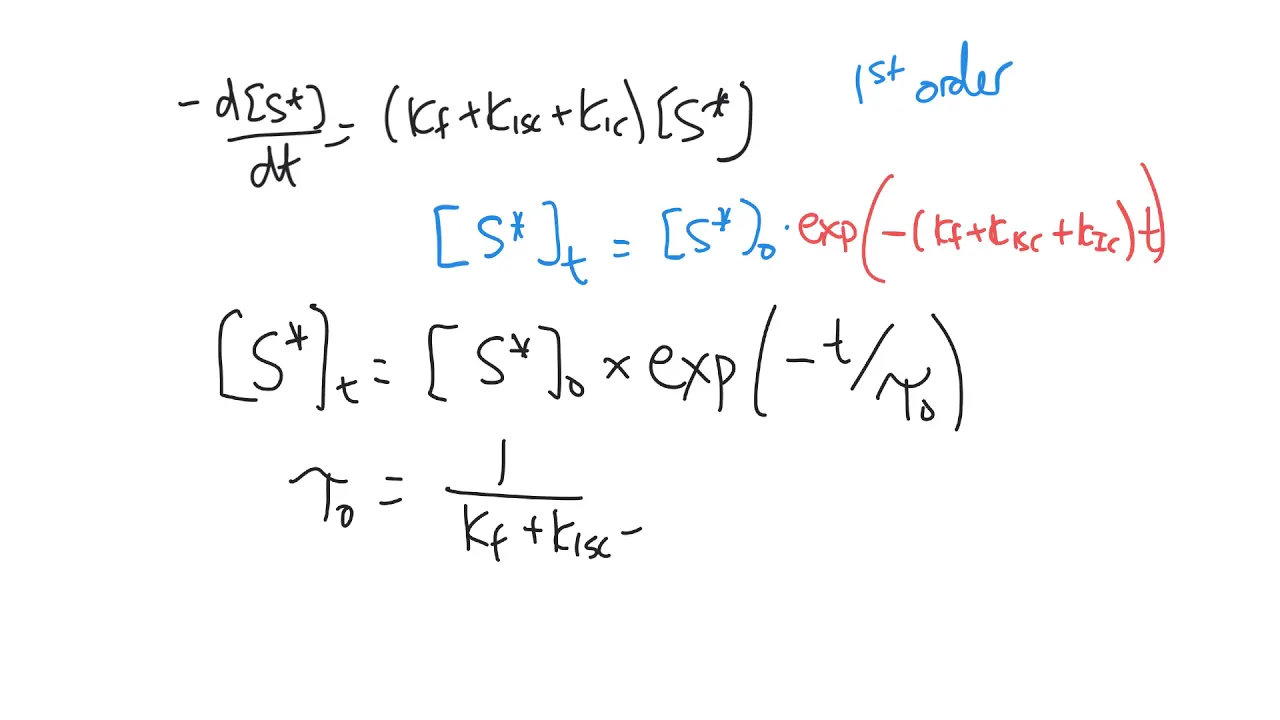 -d[S*]/dt = (kf + kISC + kIC)[S*] 1st order
[S*]t = [S*]0 · exp(-(kf + kISC + kIC)t)
[S*]t = [S*]0 × exp(-t/τ0)
τ0 = 1/(kf + kISC -